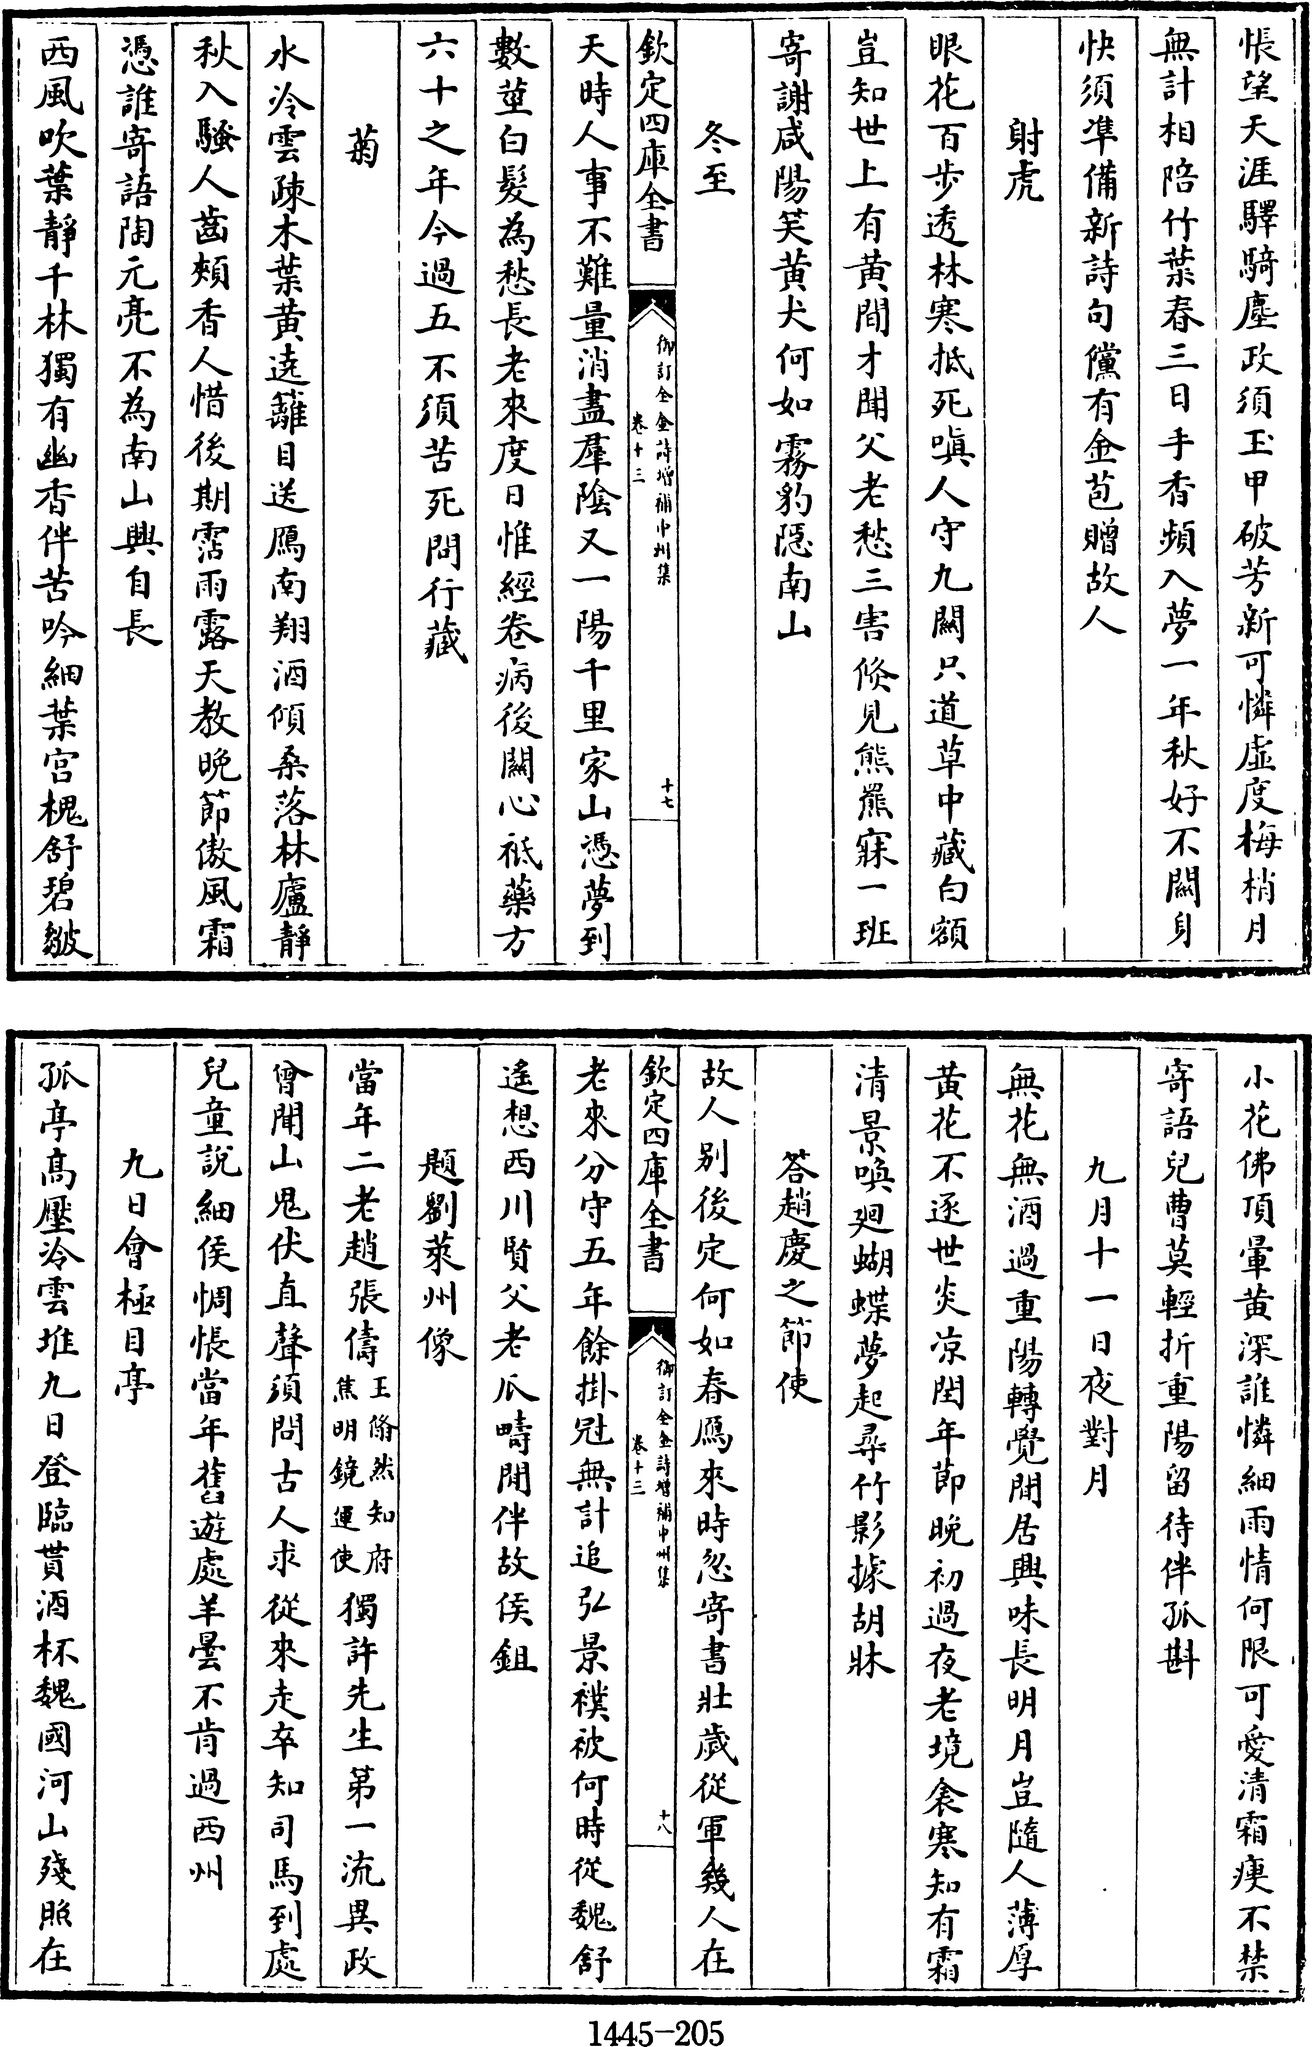 悵望天涯驛騎塵政須玉甲破芳新可憐虛度梅梢月
無計相陪竹葉春三日手香頻入夢一年秋好不關身
快須準備新詩句儻有金苞贈故人
射虎
眼花百步透林寒抵死嗔人守九關只道草中藏白額
豈知世上有黃間才聞父老愁三害倐見熊羆寐一班
寄謝咸陽笑黃犬何如霧豹隠南山
冬至
欽定四庫全書
御訂全金詩增補中州集
卷十三
十七
天時人事不難量消盡羣陰又一陽千里家山憑夢到
數莖白髮為愁長老來度日惟經卷病後關心祗藥方
六十之年今過五不須苦死問行藏
菊
水冷雲疎木葉黃遶籬目送鴈南翔酒傾桑落林廬靜
秋入騷人齒頰香人惜後期霑雨露天教晚節傲風霜
憑誰寄語陶元亮不為南山興自長
西風吹葉靜千林獨有幽香伴苦吟細葉宮槐舒碧皺
小花佛頂暈黃深誰憐細雨情何限可愛清霜瘦不禁
寄語兒曹莫輕折重陽留待伴孤斟
九月十一日夜對月
無花無酒過重陽轉覺閒居興味長明月豈隨人薄厚
黃花不逐世炎凉閏年節晚初過夜老境衾寒知有霜
清景喚廻蝴蝶夢起尋竹影據胡牀
答趙慶之節使
故人别後定何如春鴈來時忽寄書壯歲從軍幾人在
欽定四庫全書
御訂全金詩增補中州集
卷十三
十八
老來分守五年餘掛冠無計追弘景襆被何時從魏舒
遙想西川賢父老瓜疇閒伴故侯鉏
題劉萊州像
當年二老趙張儔王翛然知府焦明鏡運使獨許先生第一流異政
曾聞山鬼伏直聲須問古人求從來走卒知司馬到處
兒童說細侯惆悵當年舊遊處羊曇不肯過西州
九日會極目亭
孤亭高壓冷雲堆九日登臨貰酒杯魏國河山殘照在
1445-205